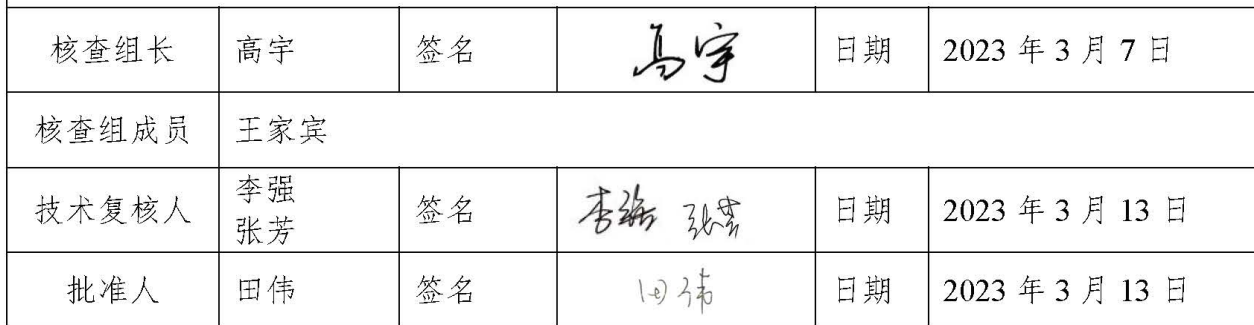 核查组长 高宇 签名 高宇 日期 2023 年 3 月 7 日
核查组成员 王家宾
技术复核人 李强 签名 李强 张芳 日期 2023 年 3 月 13 日
张芳
批准人 田伟 签名 田伟 日期 2023 年 3 月 13 日